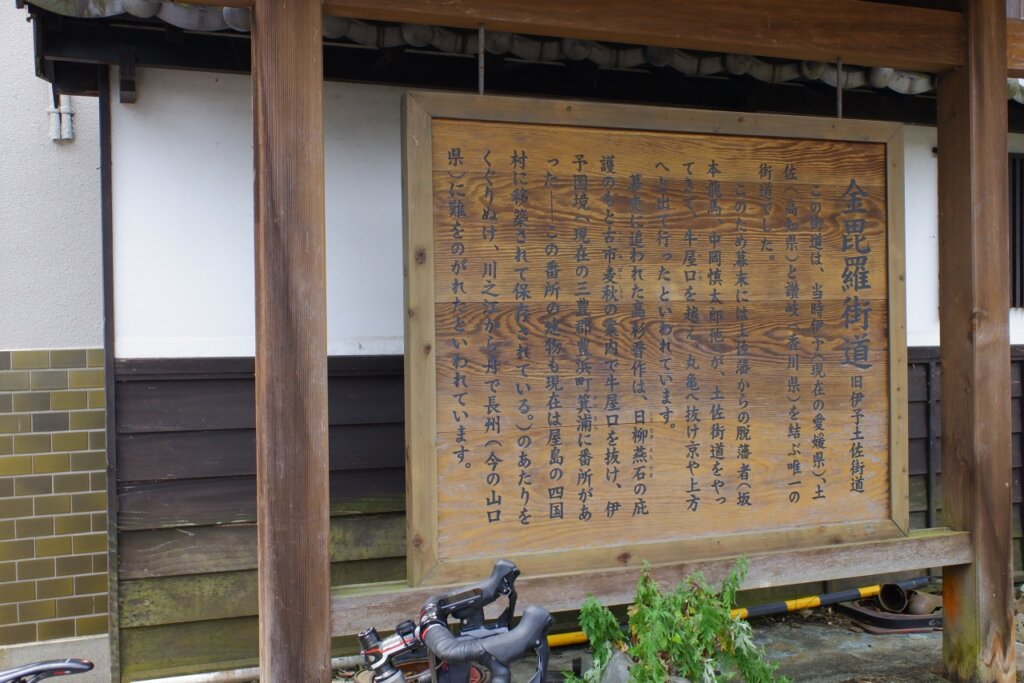 金毘羅街道 旧伊予土佐街道
この街道は、当時伊予(現在の愛媛県)、土
佐(高知県)と讃岐(香川県)を結ぶ唯一の
街道でした。
このため幕末には土佐藩からの脱藩者(坂
本龍馬 中岡慎太郎他)が、土佐街道をやっ
てきて、牛屋口を越え、丸亀へ抜け京や上方
へと出て行ったといわれています。
幕吏に追われた高杉晋作は、日柳燕石の庇
護のもと古市麦秋の案内で牛屋口を抜け、伊
予国境(現在の三豊郡豊浜町箕浦に番所があ
った――この番所の建物も現在は屋島の四国
村に移築されて保存されている。)のあたりを
くぐりぬけ、川之江から舟で長州(今の山口
県)に難をのがれたといわれています。